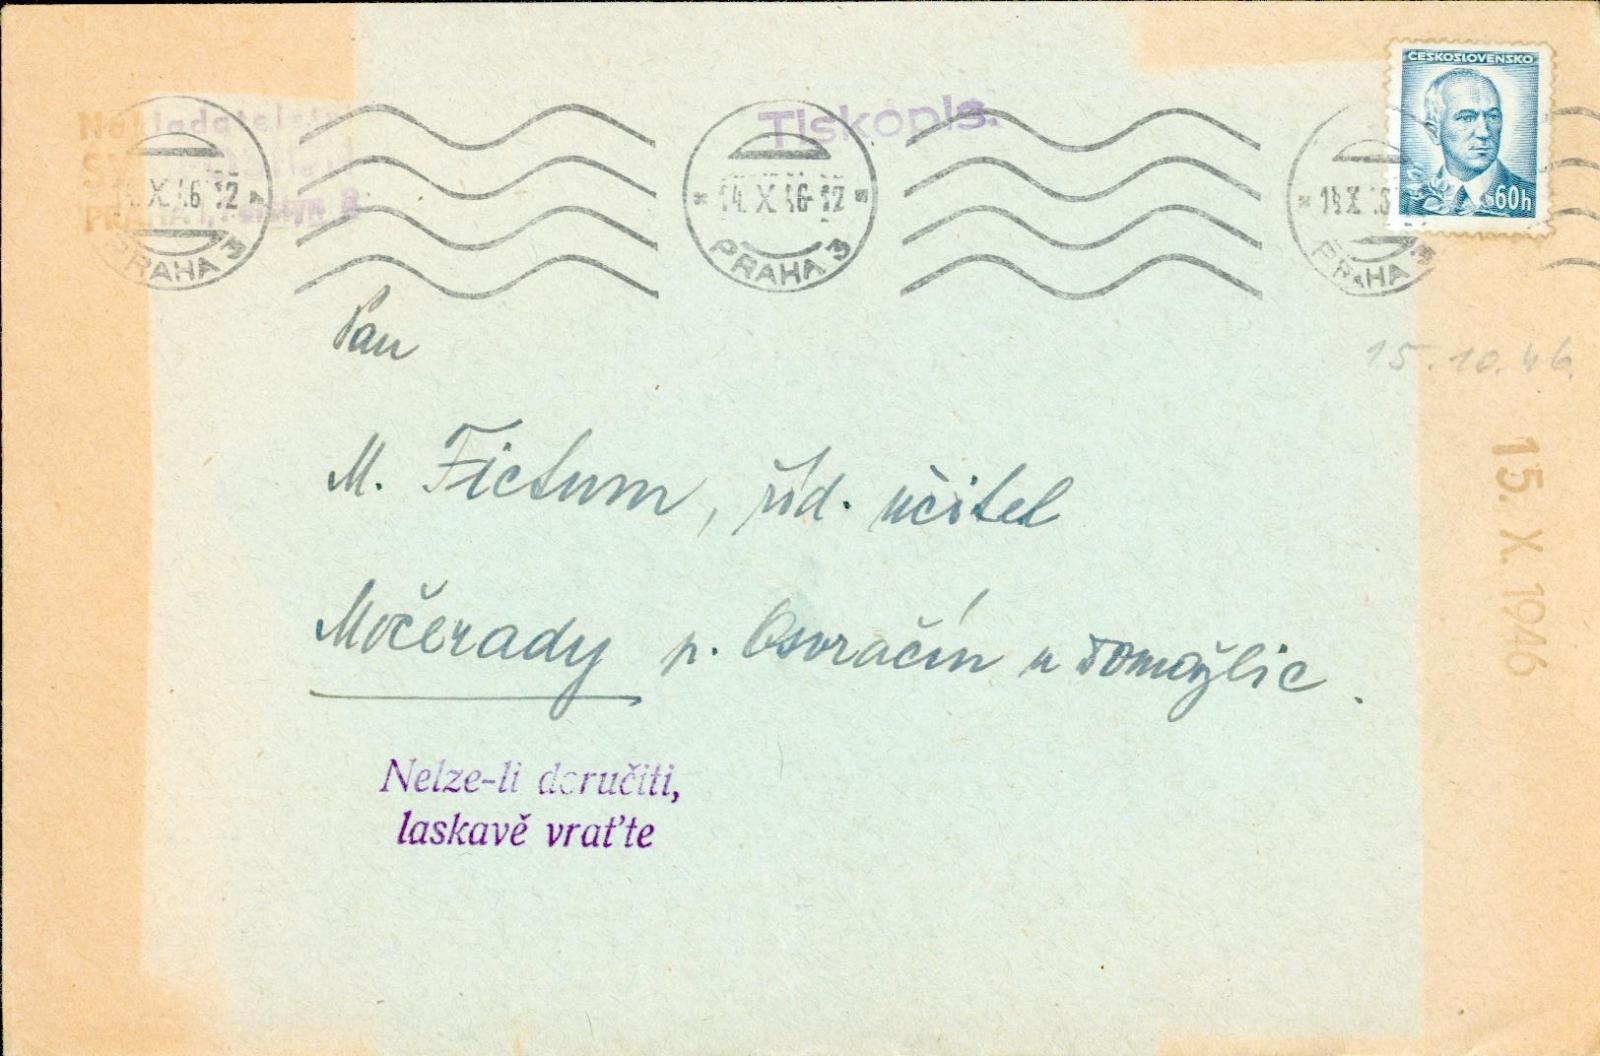 ČESKOSLOVENSKO
60h
Nakladatelství
PRAHA I, Perštýn 8
Tiskopis.
14. X. 46-12
PRAHA 3
14. X. 46-12
PRAHA 3
PRAHA 3
Pan
15. 10. 46.
M. Fictum, říd. učitel
15. X. 1946
Močerady p. Osvračín u Domažlic.
Nelze-li doručiti,
laskavě vraťte